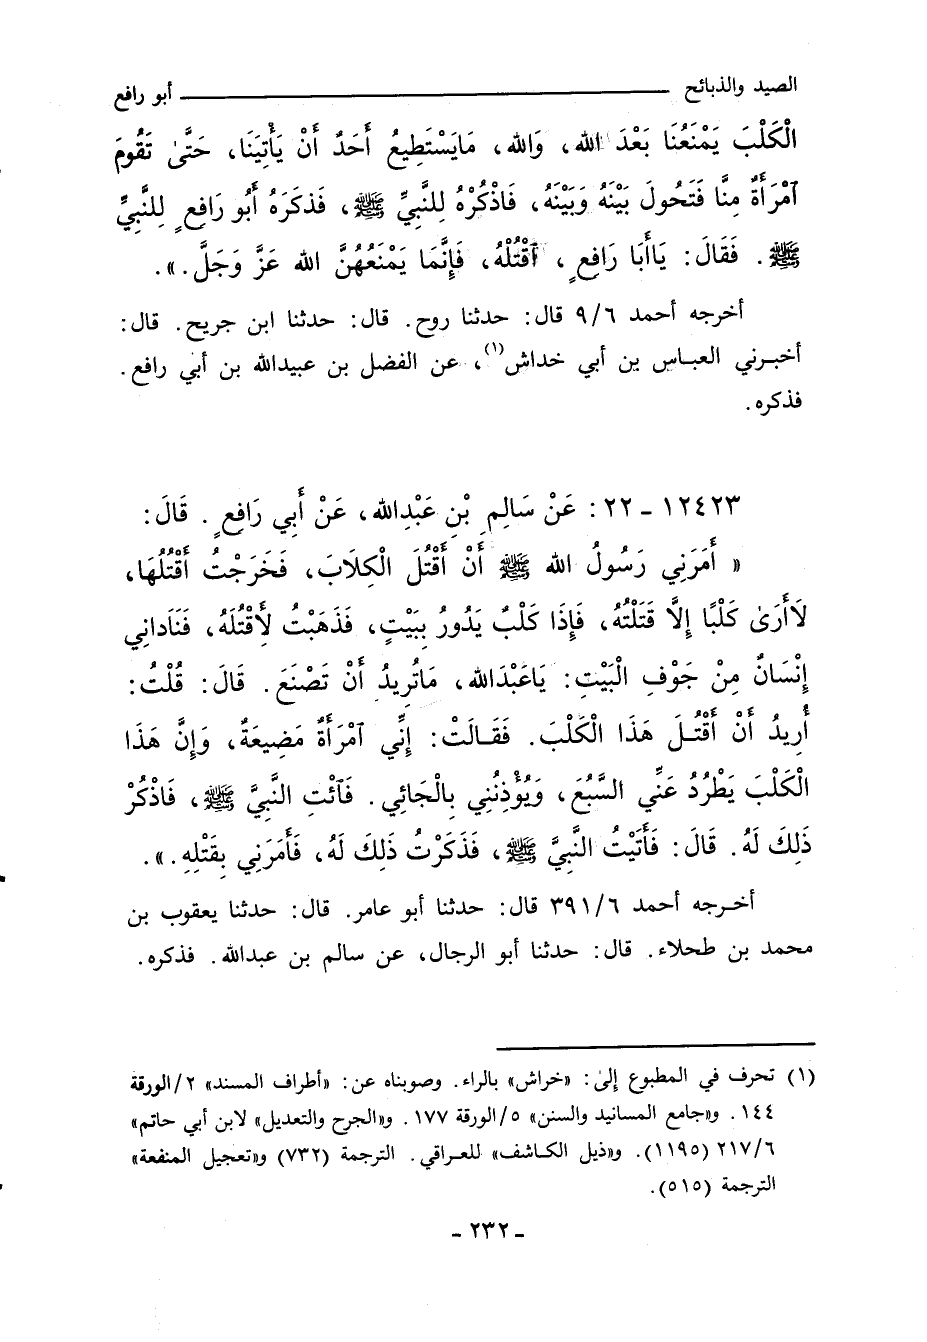 الصيد والذبائح ــــــ أبو رافع
الْكَلْبَ يَمْنَعُنَا بَعْدَ الله، وَالله، مَايَسْتَطِيعُ أَحَدٌ أَنْ يَأْتِيَنَا، حَتَّىٰ تَقُومَ
ٱمْرَأَةٌ مِنَّا فَتَحُولَ بَيْنَهُ وَبَيْنَهُ، فَاذْكُرْهُ لِلنَّبِيِّ ﷺ، فَذكَرَهُ أَبُو رَافِعٍ لِلنَّبِيِّ
ﷺ. فَقَالَ: يَاأَبَا رَافِعٍ، ٱقْتُلْهُ، فَإِنَّمَا يَمْنَعُهُنَّ الله عَزَّ وَجَلَّ.».
أخرجه أحمد ٩/٦ قال: حدثنا روح. قال: حدثنا ابن جريح. قال:
أخبرني العباس بن أبي خداش(١)، عن الفضل بن عبيدالله بن أبي رافع.
فذكره.
١٢٤٢٣ - ٢٢: عَنْ سَالِمِ بْنِ عَبْدِالله، عَنْ أَبِي رَافِعٍ. قَالَ:
« أَمَرَنِي رَسُولُ الله ﷺ أَنْ أَقْتُلَ الْكِلاَبَ، فَخَرَجْتُ أَقْتُلُهَا،
لاَأَرَىٰ كَلْبًا إِلاَّ قَتَلْتُهُ، فَإِذَا كَلْبٌ يَدُورُ بِبَيْتٍ، فَذَهَبْتُ لأِقْتُلَهُ، فَنَادانِي
إِنْسَانٌ مِنْ جَوْفِ الْبَيْتِ: يَاعَبْدَالله، مَاتُرِيدُ أَنْ تَصْنَعَ. قَالَ: قُلْتُ:
أُرِيدُ أَنْ أَقْتُلَ هَذَا الْكَلْبَ. فَقَالَتْ: إِنِّي ٱمْرَأَةٌ مَضِيعَةٌ، وَإِنَّ هَذَا
الْكَلْبَ يَطْرُدُ عَنِّي السَّبُعَ، وَيُؤْذِنُنِي بِالْجَائِي. فَٱئْتِ النَّبِيَّ ﷺ، فَاذْكُرْ
ذَلِكَ لَهُ. قَالَ: فَأَتَيْتُ النَّبِيَّ ﷺ، فَذَكَرْتُ ذَلِكَ لَهُ، فَأَمَرَنِي بِقَتْلِهِ.».
أخرجه أحمد ٣٩١/٦ قال: حدثنا أبو عامر. قال: حدثنا يعقوب بن
محمد بن طحلاء. قال: حدثنا أبو الرجال، عن سالم بن عبدالله. فذكره.
(١) تحرف في المطبوع إلىٰ: «خراش» بالراء. وصوبناه عن: «أطراف المسند» ٢/الورقة
١٤٤. و«جامع المسانيد والسنن» ٥/الورقة ١٧٧. و«الجرح والتعديل» لابن أبي حاتم»
٢١٧/٦ (١١٩٥). و«ذيل الكاشف» للعراقي. الترجمة (٧٣٢) و«تعجيل المنفعة»
الترجمة (٥١٥).
- ٢٣٢ -